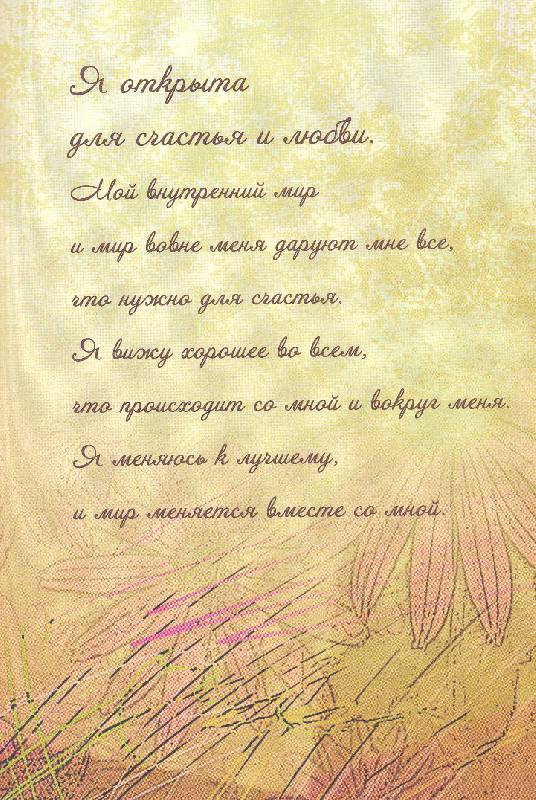 Я открыта
для счастья и любви.
Мой внутренний мир
и мир вовне меня даруют мне все,
что нужно для счастья.
Я вижу хорошее во всем,
что происходит со мной и вокруг меня.
Я меняюсь к лучшему,
и мир меняется вместе со мной.